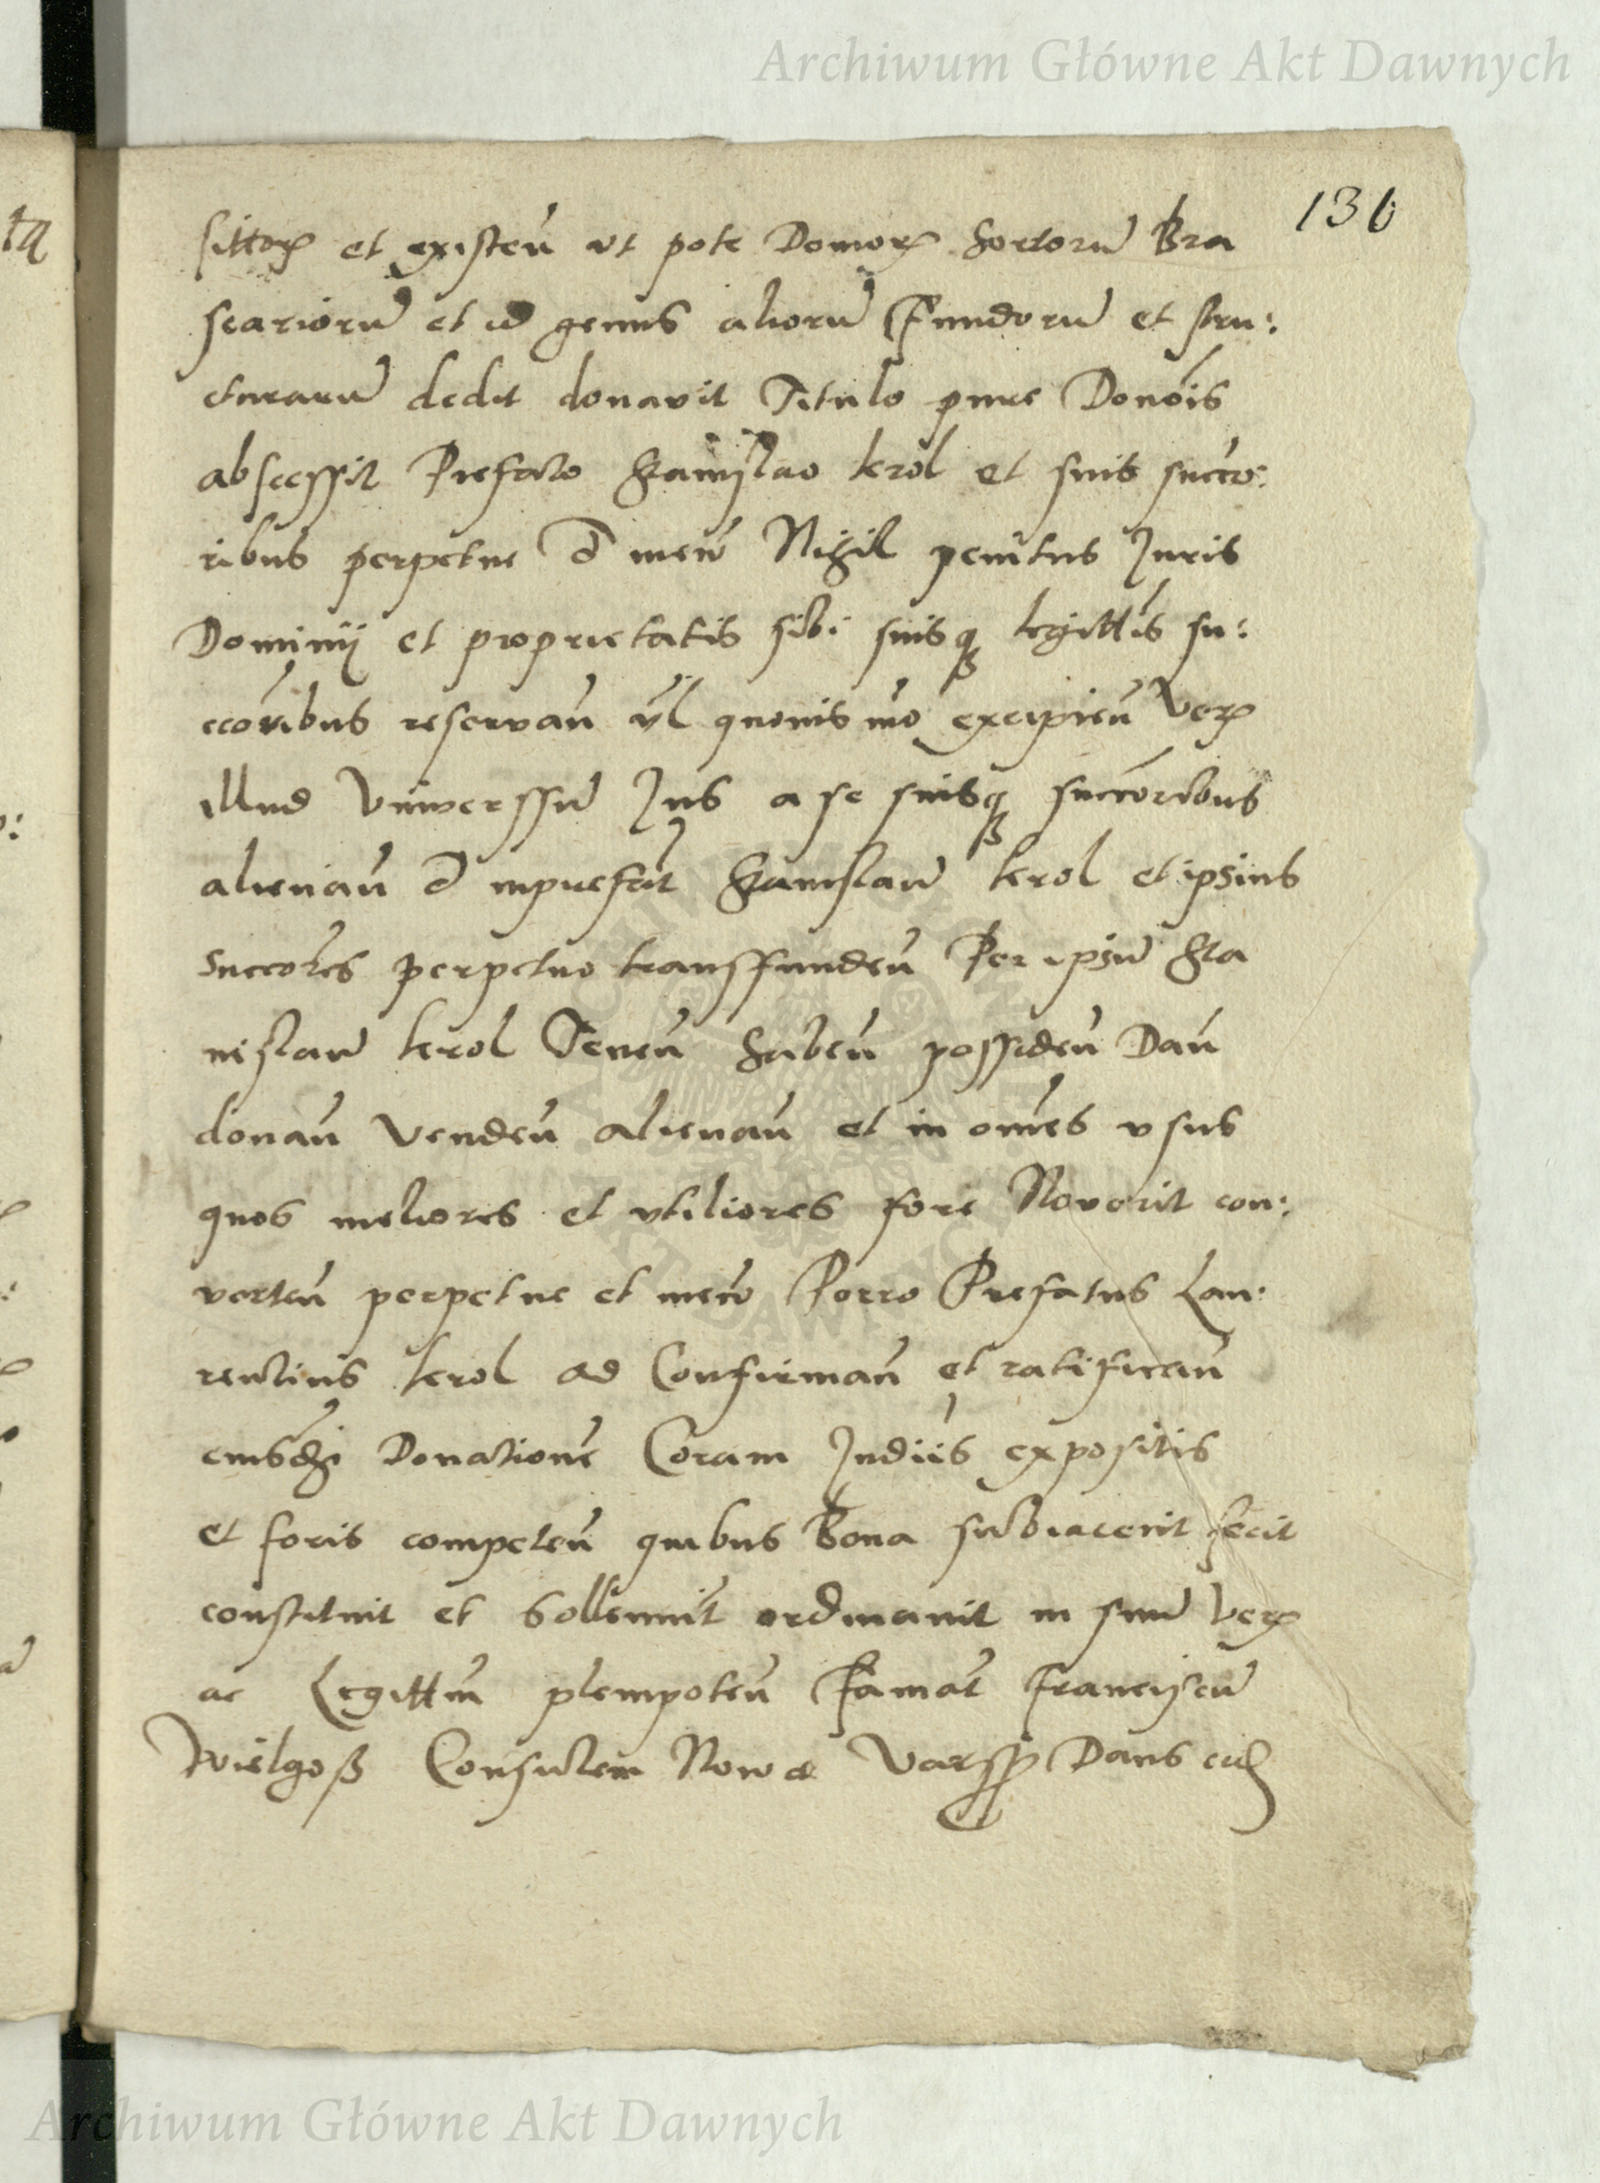 Archiwum Główne Akt Dawnych
136
sittor et existen ut pote Domor hortoru Bra
seatioru et id genus alioru Fundoru et stru:
cturaru dedit donavit Titulo pure Donois
abscessit Prefato Stanislao krol et suis succo:
ribus perpetue et meo Nihil penitus Juris
Dominij et proprietatis sibi suisq legittis su:
ccoribus reservan vl quovis mo excipien Ver
illud Universsu Jus a se suisq succoribus
alienan et in prefat Stanislau krol et ipsius
succores perpetuo transffunden Per ipsu Sta
nislau krol Tenen haben possiden Dan
donan Venden alienan et in omes usus
quos meliores et utiliores fore Noverit con:
verten perpetue et meo Porro Prefatus Lau:
rentius krol ad Confirman et ratifican
eiusdem Donatione Coram Judiis expositis
et foris competen quibus Bona subiacerit fecit
constituit et Sollennit ordinavit in suu Ver
ac Legittm plenipoten Famat Franciscu
Wielgoß Consulem Nowae Varss Dans eid
Archiwum Główne Akt Dawnych